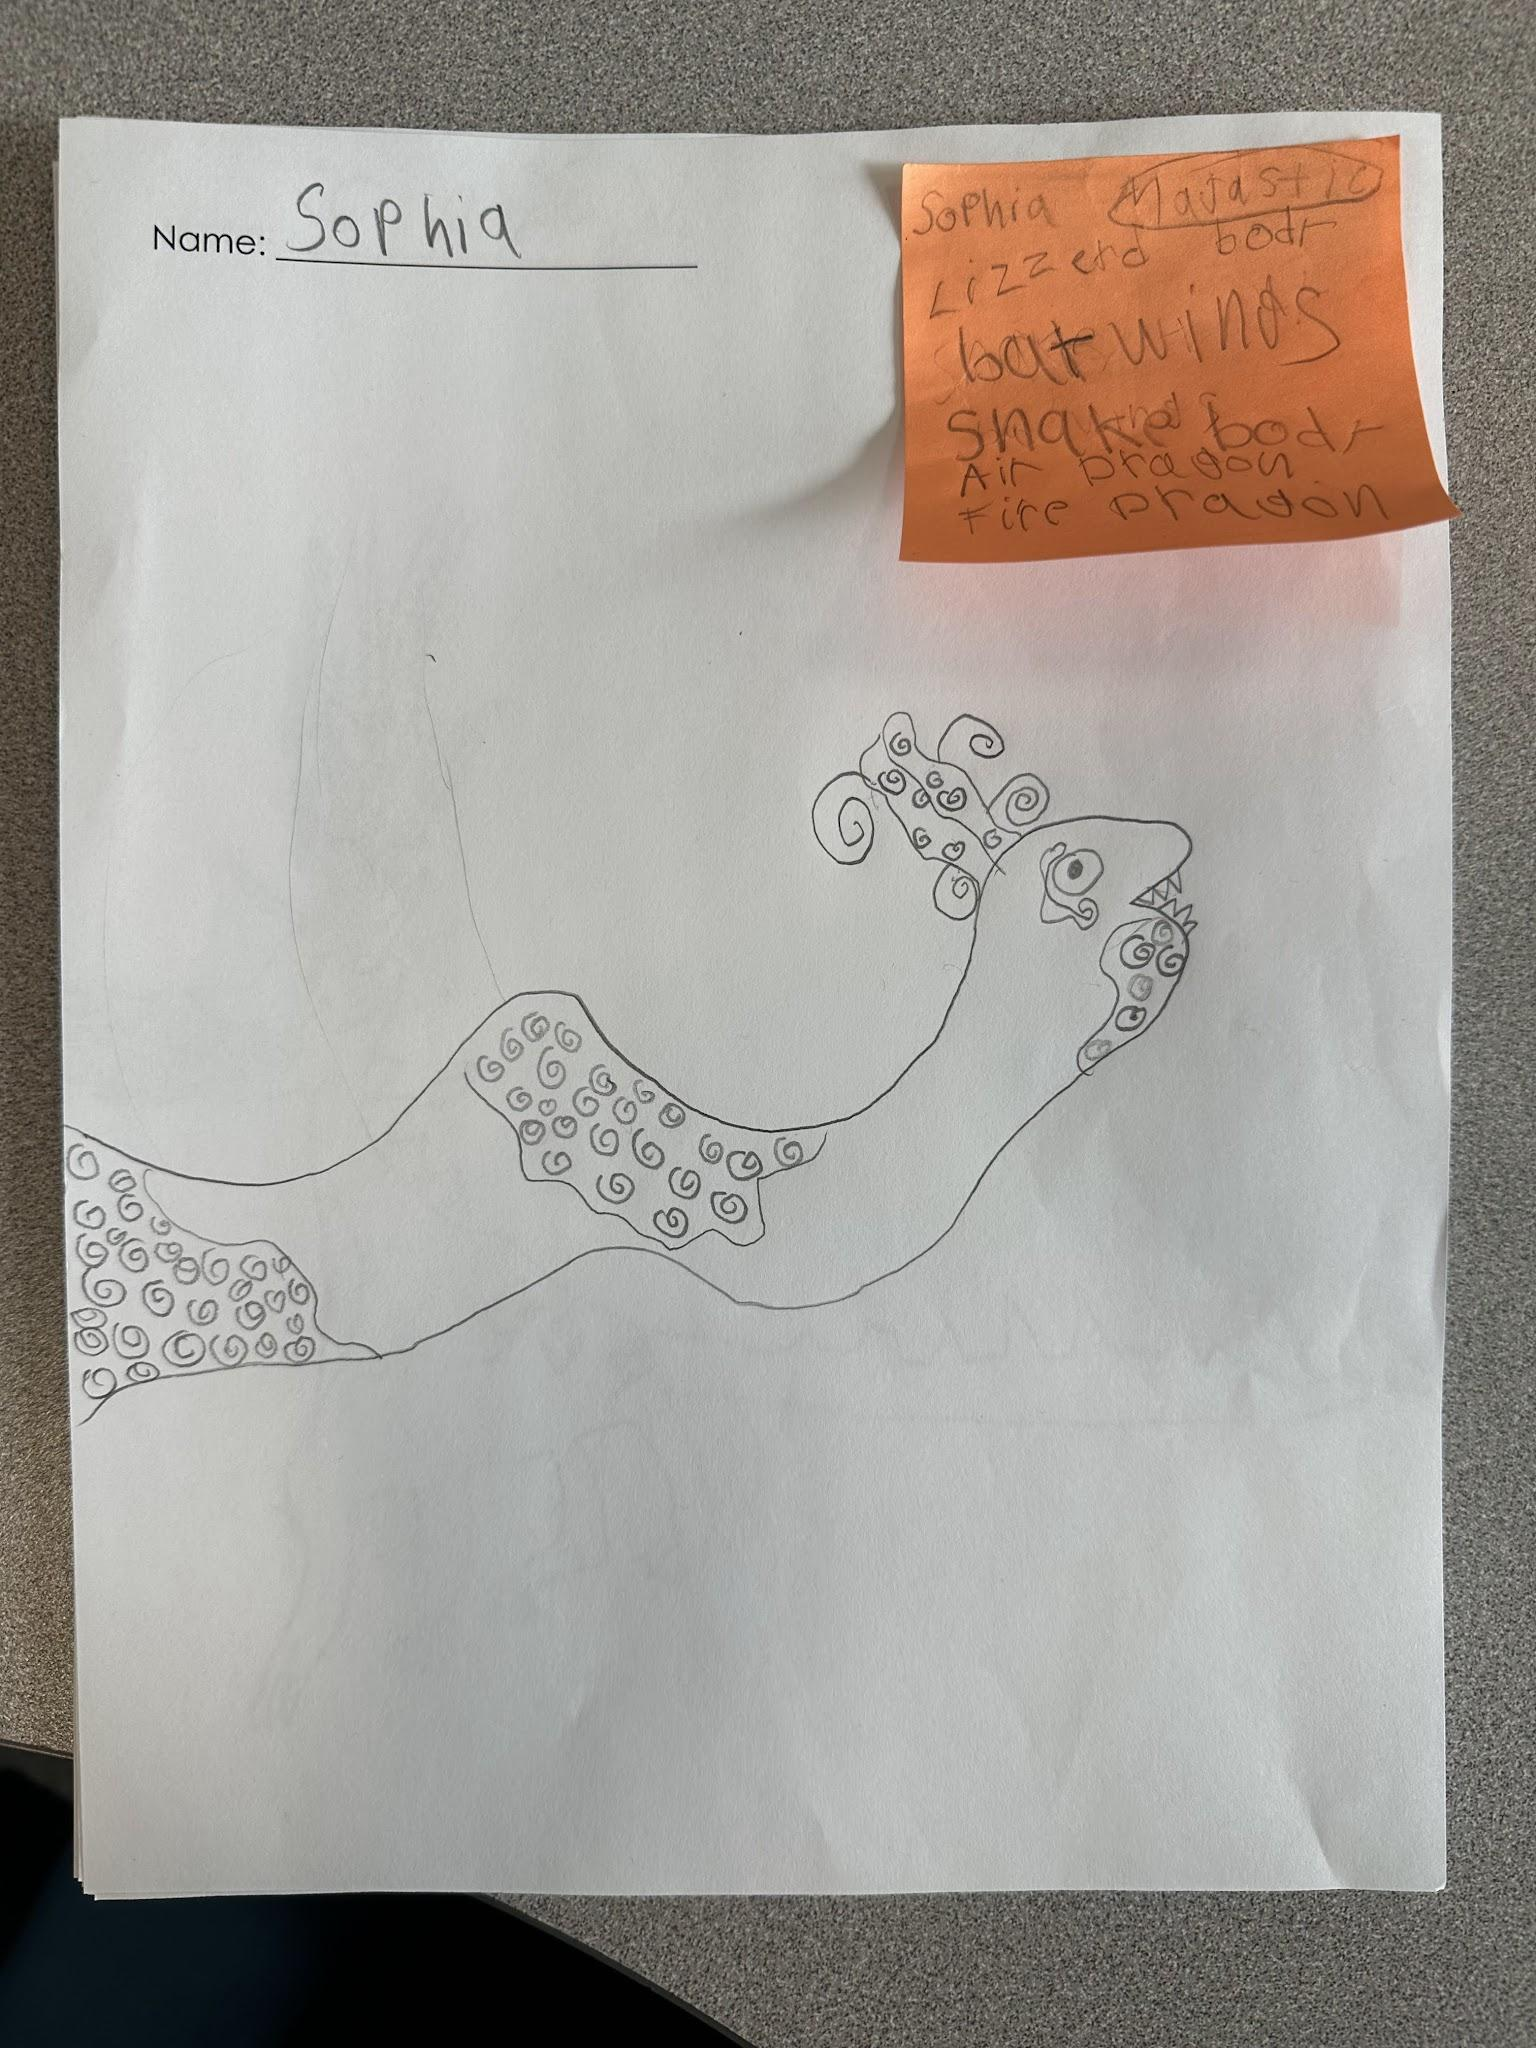 Name: Sophia
Sophia Majastic
Lizzerd body
bat wings
Snake body
Air Dragon
Fire Dragon